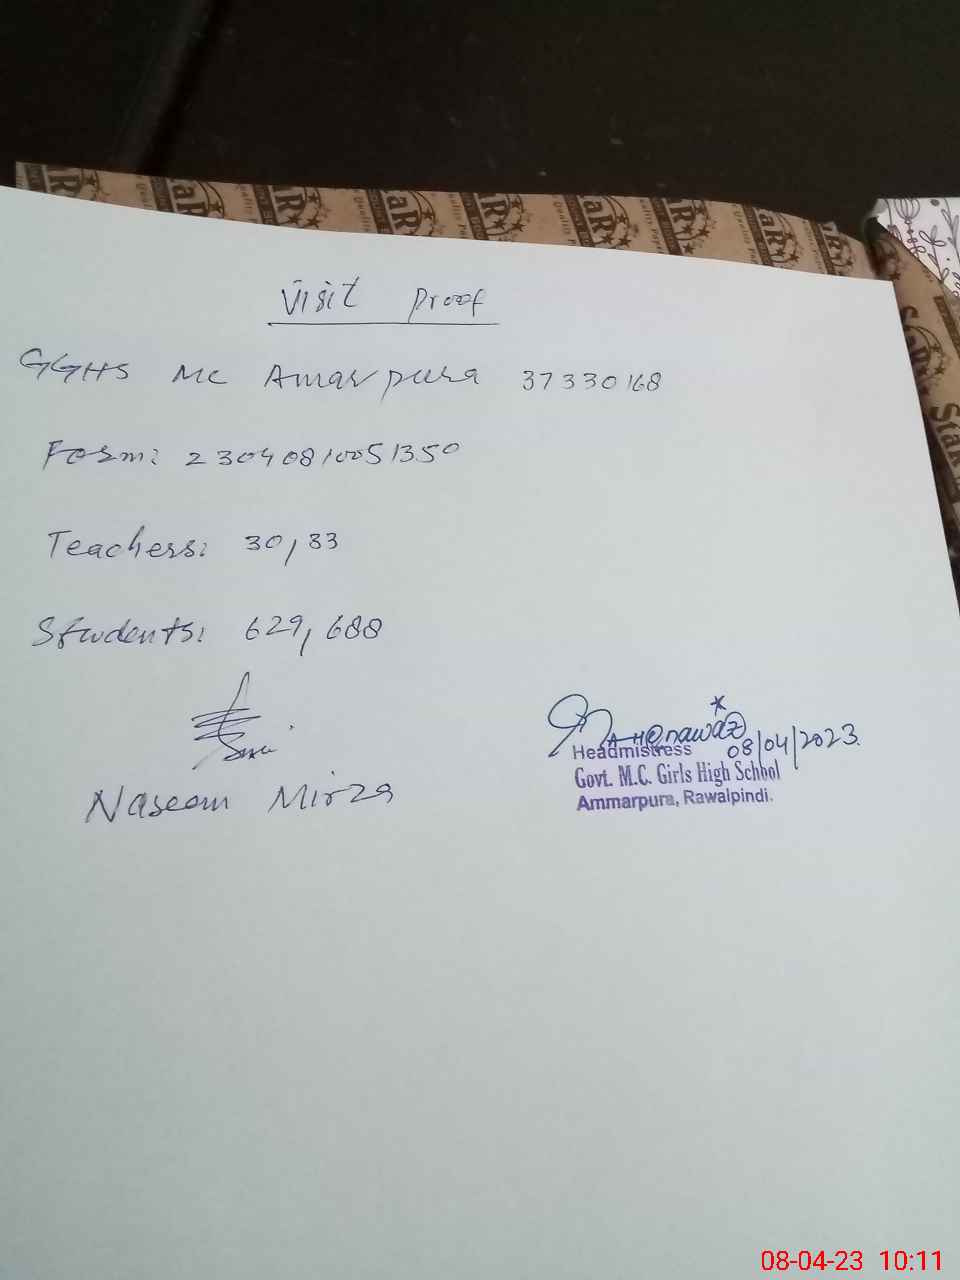 Visit Proof
GGHS MC Amarpura 37330168
Form: 23040810051350
Teachers: 30, 33
Students: 629, 688
Naseem Mirza
08/04/2023
Headmistress
Govt. M.C. Girls High School
Ammarpura, Rawalpindi.
StaR
08-04-23 10:11